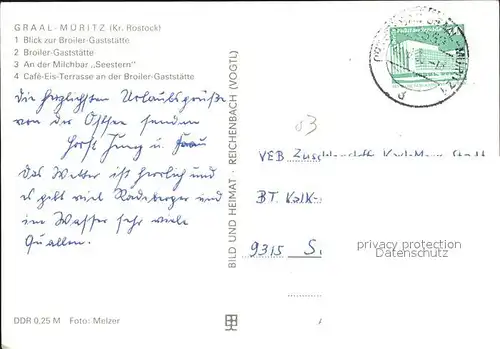 GRAAL-MÜRITZ (Kr. Rostock)
1 Blick zur Broiler-Gaststätte
2 Broiler-Gaststätte
3 An der Milchbar „Seestern"
4 Café-Eis-Terrasse an der Broiler-Gaststätte
Die herzlichsten Urlaubsgrüße
von der Ostsee senden
Horst Jung u. Frau
Das Wetter ist herrlich und
es gibt viel Radeberger und
im Wasser sehr viele
Quallen.
DDR 0,25 M Foto: Melzer
BILD UND HEIMAT · REICHENBACH (VOGTL)
83
VEB
BT Kalk-
9315 S
privacy protection
Ansichtskartenversand.com